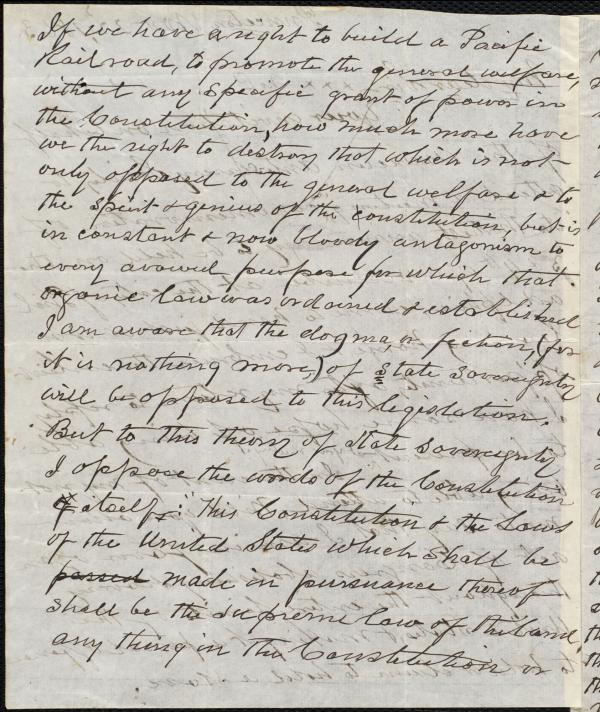 If we have a right to build a Pacific
Railroad, to promote the general welfare,
without any specific grant of power in
the Constitution, how much more have
we the right to destroy that which is not
only opposed to the general welfare & to
the spirit & genius of the constitution, but is
in constant & now bloody antagonism to
every avowed purpose for which that
organic law was ordained & established
I am aware that the dogma, or fiction, (for
it is nothing more,) of State sovereignty
will be opposed to this legislation.
But to this theory of State sovereignty
I oppose the words of the Constitution
itself: "This Constitution & the Laws
of the United States which shall be
passed made in pursuance thereof
shall be the supreme law of the land,
any thing in the Constitution or